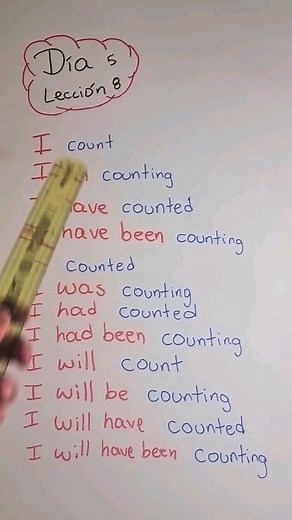 Día 5
Lección 8
I count
I counting
have counted
have been counting
Counted
I was counting
I had counted
I had been counting
I will count
I will be counting
I will have counted
I will have been counting